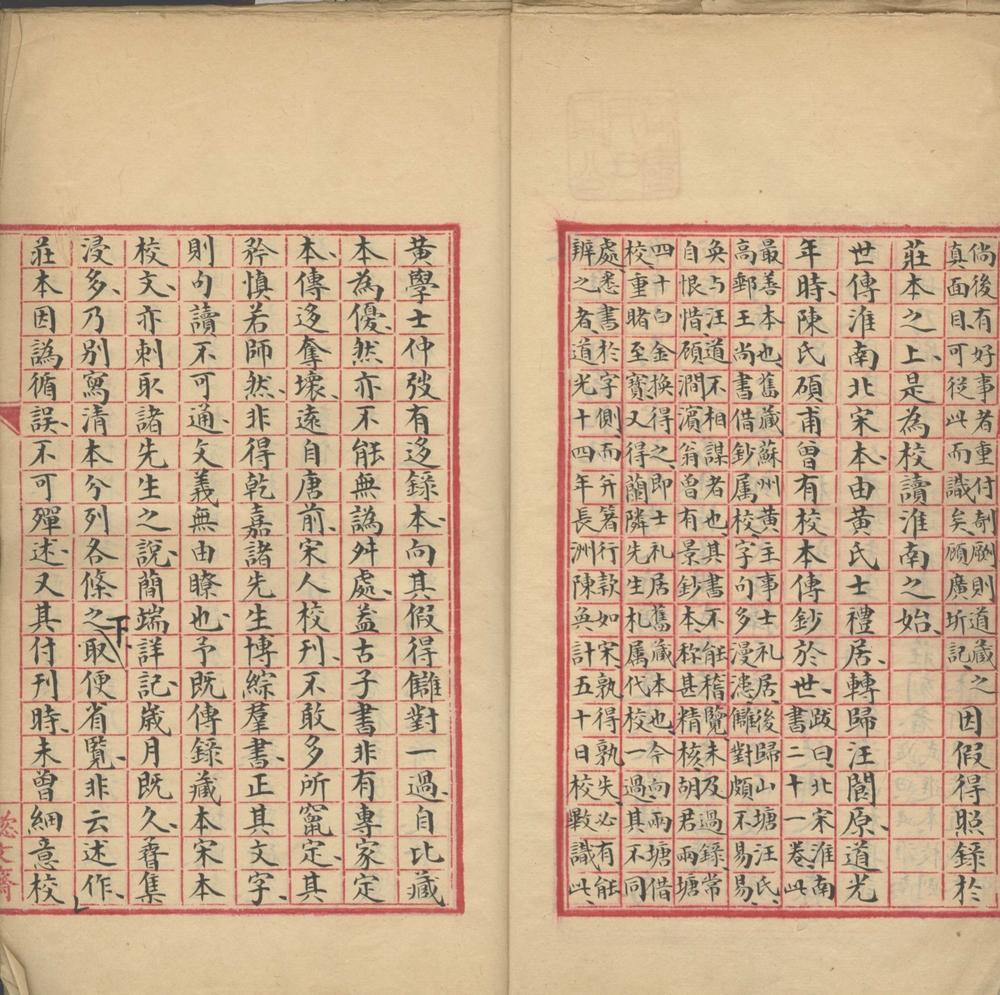 倘後有好事者重付剞劂則道藏
真面目、可從此而識矣、顧廣圻記、
之因假得照錄於
莊本之上、是為校讀淮南之始、
世傳淮南北宋本、由黃氏士禮居、轉歸汪閬原、道光
年時、陳氏碩甫曾有校本傳鈔於世、
跋曰、北宋淮南
書二十一卷、此
最善本也、舊藏蘇州黃主事士礼居、後歸山塘汪氏、
高郵王尚書借鈔属校、字句多漫漶、讎對頗不易易、
奐与汪道不相謀者也、其書不能稽覽、未及過錄、常
自恨惜、顧澗濵翁曾有景鈔本、称甚精核、胡君雨塘
四十白金換得之、即士礼居舊藏本也、今向雨塘借
校、重睹至寶、又得蘭隣先生札属代校一過、其不同
處、悉書於字側、而并箸行款如宋、孰得孰失、必有能
辨之者、道光十四年長洲陳奐計五十日校斁識此、
黃學士仲弢有迻錄本、向其假得讎對一過、自比藏
本為優、然亦不能無譌舛處、蓋古子書非有專家定
本、傳迻奪壞、遠自唐前、宋人校刊、不敢多所竄定、其
矜慎若師然、非得乾嘉諸先生博綜羣書、正其文字、
則句讀不可通、文義無由瞭也、予既傳錄藏本宋本
校文、亦刺取諸先生之說、簡端詳記、歲月既久、眷集
浸多、乃別寫清本分列各條之下取便省覧、非云述作、
莊本因譌循誤、不可殫述、又其付刊時、未曾細意校